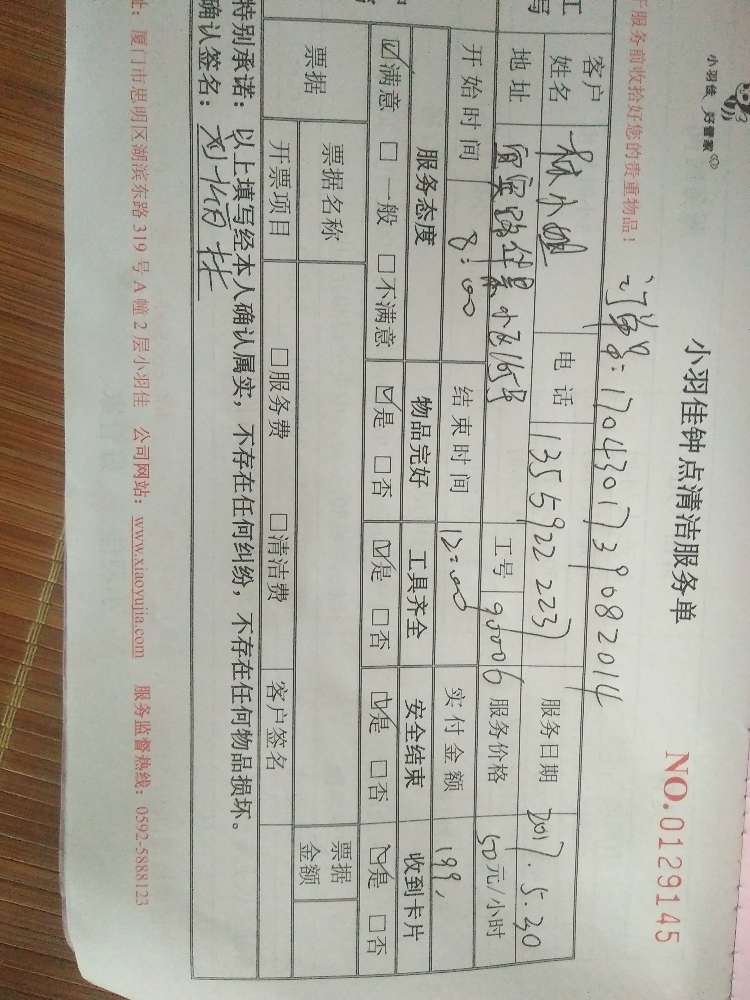 小羽佳 好管家
小羽佳钟点清洁服务单 NO.0129145
服务前收拾好您的贵重物品！ 订单号:1704301739082014
客户姓名 林小姐 电话 13559222237 服务日期 2017.5.30
地址 小区165号 工号 90006 服务价格 50元/小时
开始时间 8:00 结束时间 12:00 实付金额 199,
服务态度 物品完好 工具齐全 安全结束 收到卡片
☑满意 □一般 □不满意 ☑是 □否 ☑是 □否 ☑是 □否 ☑是 □否
票据 票据名称 票据金额
开票项目 □服务费 □清洁费 客户签名
特别承诺：以上填写经本人确认属实，不存在任何纠纷，不存在任何物品损坏。
确认签名：
址：厦门市思明区湖滨东路319号A幢2层小羽佳 公司网站：www.xiaoyujia.com 服务监督热线：0592-5888123